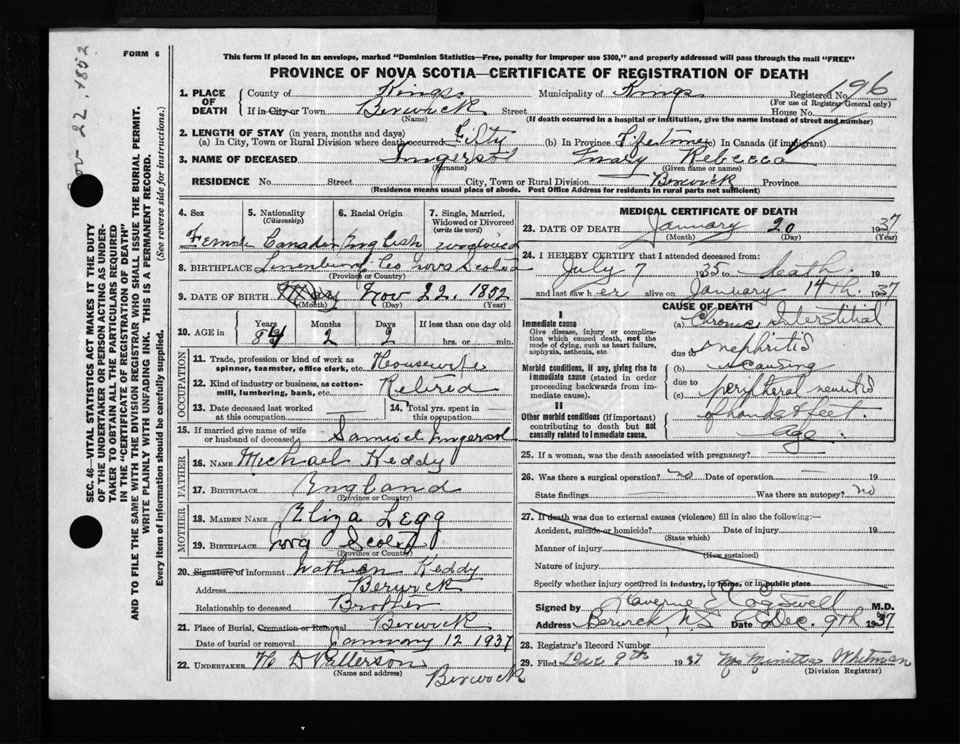 FORM 6
This form if placed in an envelope, marked "Dominion Statistics—Free, penalty for improper use $300," and properly addressed will pass through the mail "FREE"
PROVINCE OF NOVA SCOTIA—CERTIFICATE OF REGISTRATION OF DEATH
Nov 22, 1852
SEC. 46—VITAL STATISTICS ACT MAKES IT THE DUTY
OF THE UNDERTAKER OR PERSON ACTING AS UNDER-
TAKER TO OBTAIN ALL THE PARTICULARS REQUIRED
IN THE "CERTIFICATE OF REGISTRATION OF DEATH"
AND TO FILE THE SAME WITH THE DIVISION REGISTRAR WHO SHALL ISSUE THE BURIAL PERMIT.
WRITE PLAINLY WITH UNFADING INK. THIS IS A PERMANENT RECORD.
Every item of information should be carefully supplied. (See reverse side for instructions.)
1. PLACE OF DEATH County of Kings Municipality of Kings Registered No. 196
(For use of Registrar General only)
If in City or Town Berwick Street House No.
(Name) (If death occurred in a hospital or institution, give the name instead of street and number)
2. LENGTH OF STAY (in years, months and days)
(a) In City, Town or Rural Division where death occurred Fifty (b) In Province Lifetime (c) In Canada (if immigrant)
3. NAME OF DECEASED Ingersol Mary Rebecca
(Surname) (Given name or names)
RESIDENCE No. Street City, Town or Rural Division Berwick Province
(Residence means usual place of abode. Post Office Address for residents in rural parts not sufficient)
4. Sex 5. Nationality (Citizenship) 6. Racial Origin 7. Single, Married, Widowed or Divorced (write the word)
Female Canadian English widowed
8. BIRTHPLACE Lunenburg Co Nova Scotia
(Province or Country)
9. DATE OF BIRTH May Nov 22, 1852
(Month) (Day) (Year)
10. AGE in Years Months Days If less than one day old
84 2 hrs. or min.
OCCUPATION
11. Trade, profession or kind of work as spinner, teamster, office clerk, etc. Housewife
12. Kind of industry or business, as cotton-mill, lumbering, bank, etc. Retired
13. Date deceased last worked at this occupation 14. Total yrs. spent in this occupation
15. If married give name of wife or husband of deceased Samuel Ingersol
FATHER
16. NAME Michael Keddy
17. BIRTHPLACE England
(Province or Country)
MOTHER
18. MAIDEN NAME Eliza Legg
19. BIRTHPLACE Nova Scotia
(Province or Country)
20. Signature of informant Nathan Keddy
Address Berwick
Relationship to deceased Brother
21. Place of Burial, Cremation or Removal Berwick
Date of burial or removal January 12 1937
22. UNDERTAKER
(Name and address) Berwick
MEDICAL CERTIFICATE OF DEATH
23. DATE OF DEATH January 20 1937
(Month) (Day) (Year)
24. I HEREBY CERTIFY that I attended deceased from:
July 7 1935 to death 19
and last saw her alive on January 14th 1937
CAUSE OF DEATH
I
Immediate cause
Give disease, injury or complication which caused death, not the mode of dying, such as heart failure, asphyxia, asthenia, etc.
(a) Chronic Interstitial
due to nephritis
Morbid conditions, if any, giving rise to immediate cause (stated in order proceeding backwards from immediate cause).
(b) causing
due to peripheral neuritis
(c) of hands & feet.
II
Other morbid conditions (if important) contributing to death but not causally related to immediate cause.
age.
25. If a woman, was the death associated with pregnancy?
26. Was there a surgical operation? no Date of operation 19
State findings Was there an autopsy? no
27. If death was due to external causes (violence) fill in also the following:—
Accident, suicide or homicide? Date of injury 19
(State which)
Manner of injury
(How sustained)
Nature of injury
Specify whether injury occurred in industry, in home, or in public place
Signed by Laverne Cogswell M.D.
Address Berwick, NS Date Dec. 9th 1937
28. Registrar's Record Number
29. Filed Dec 9th 1937 Whitman
(Division Registrar)